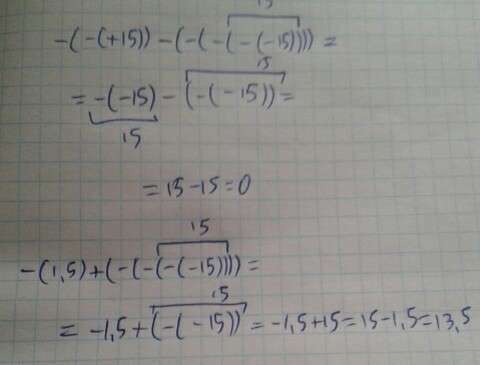 15
-(-(+15))-(-(-(-(-15)))) =
15
= -(-15) - (-(-15)) =
15
= 15 - 15 = 0
15
-(1,5)+(-(-(-(-15)))) =
15
= -1,5+(-(-15)) = -1,5+15=15-1,5=13,5